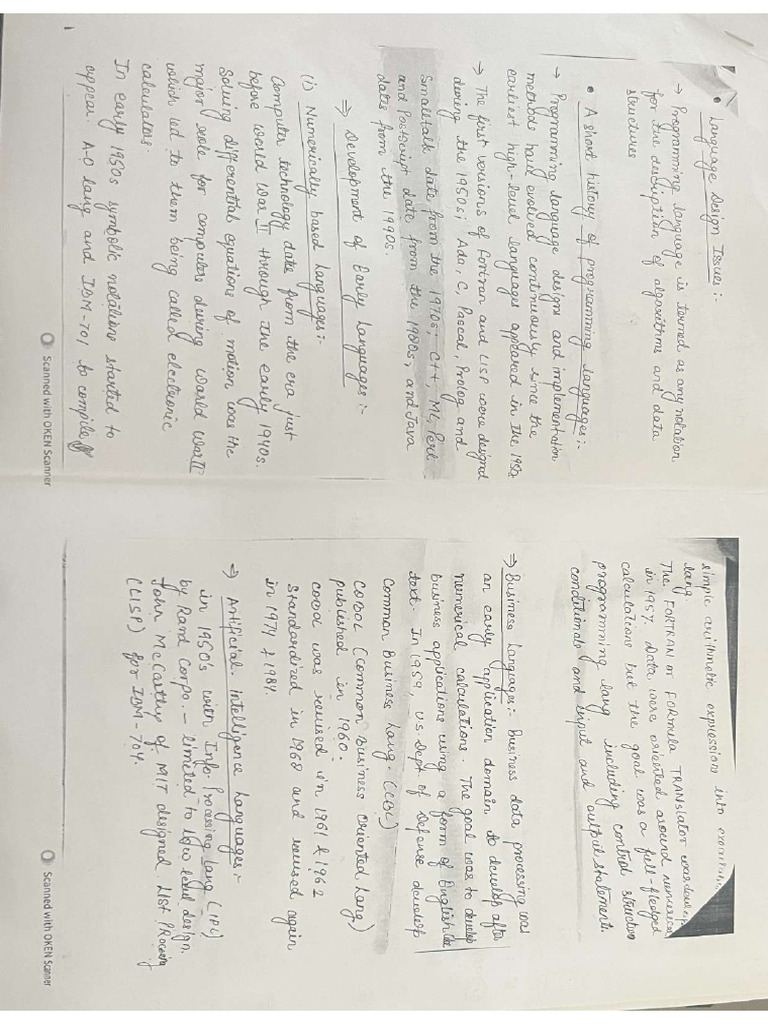 • Language Design Issues :-
→ Programming language is termed as any notation
for the description of algorithms and data
structures
• A short history of programming languages :-
→ Programming language designs and implementation
methods have evolved continuously since the
earliest high-level languages appeared in the 1950s
→ The first versions of Fortran and LISP were designed
during the 1950s; Ada, C, Pascal, Prolog and
Smalltalk date from the 1970s; C++, ML, Perl
and Postscript date from the 1980s, and Java
dates from the 1990s.
⇒ Development of Early Languages :-
(i) Numerically based languages :-
Computer technology date from the era just
before World War II through the early 1940s.
Solving differential equations of motion was the
major role for computers during World War II
which led to them being called electronic
calculators.
In early 1950s symbolic notations started to
appear. A-0 lang and IBM-701 to compile
Scanned with OKEN Scanner
simple arithmetic expressions into executable
lang.
The FORTRAN or FORmula TRANslator was develop
in 1957. Data were oriented around numerical
calculations but the goal was a full-fledged
programming lang including control structure
conditionals and input and output statement.
⇒ Business Languages :- Business data processing was
an early application domain to develop after
numerical calculations. The goal was to develop
business applications using a form of English like
text. In 1959, US Dept of Defense develop
Common Business Lang. (CBL)
COBOL (Common Business Oriented Lang)
published in 1960.
COBOL was revised in 1961 & 1962
standardized in 1968 and revised again
in 1974 & 1984.
⇒ Artificial Intelligence Languages :-
in 1950's with Info. Processing Lang (IPL)
by Rand Corpo. - limited to low level design.
John McCarthy of MIT designed LIST PRocessing
(LISP) for IBM-704.
Scanned with OKEN Scanner